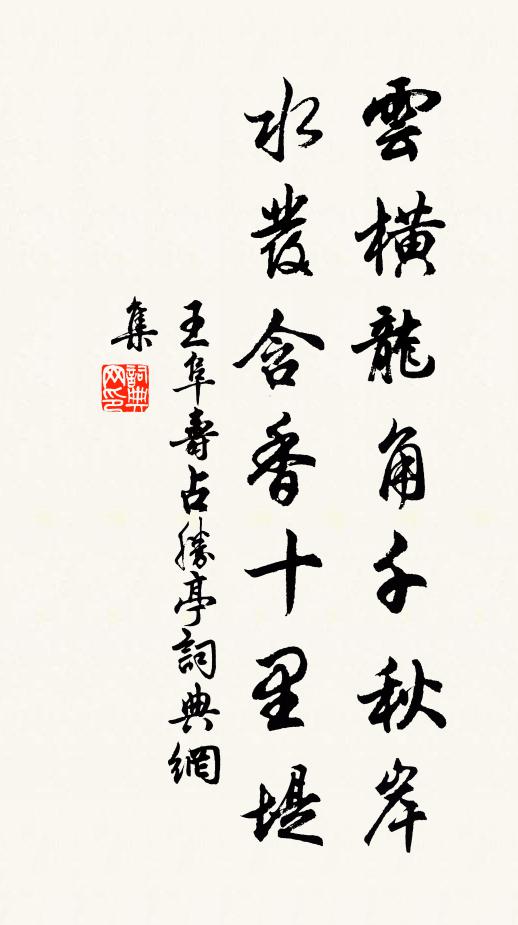 雲橫龍角千秋岸
水發含香十里堤
王阜壽占勝亭詞典網
集
詞典
网印